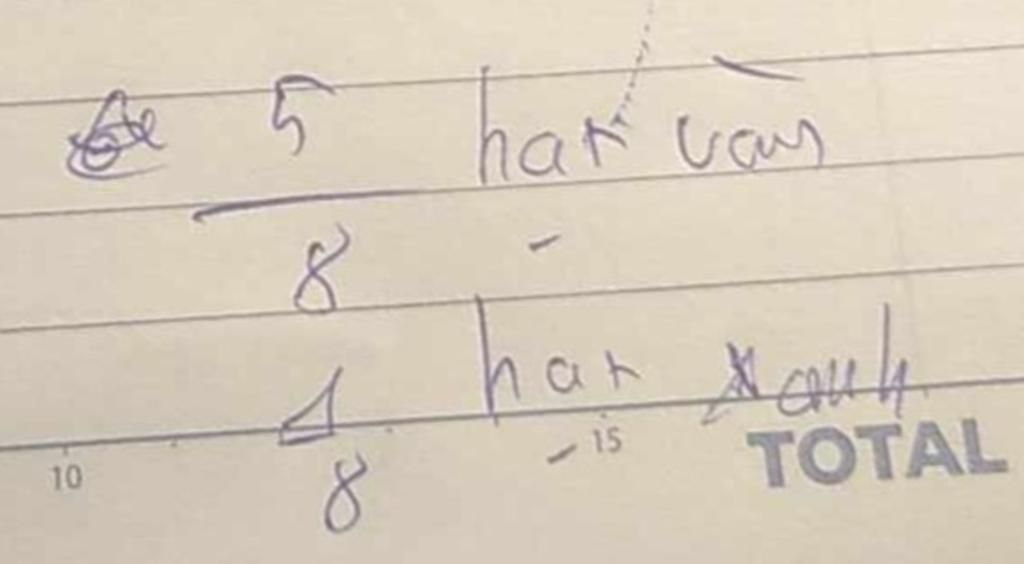 5 hạt vàng
8
1 hạt xanh
8
10 15 TOTAL